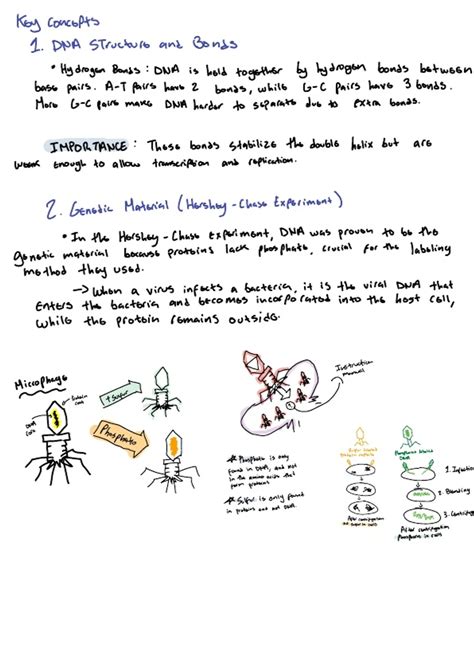 Key Concepts
1. DNA Structure and Bonds
• Hydrogen Bonds: DNA is held together by hydrogen bonds between
base pairs. A-T pairs have 2 bonds, while G-C pairs have 3 bonds.
More G-C pairs make DNA harder to separate due to extra bonds.
IMPORTANCE: These bonds stabilize the double helix but are
weak enough to allow transcription and replication.
2. Genetic Material (Hershey-Chase Experiment)
• In the Hershey-Chase experiment, DNA was proven to be the
genetic material because proteins lack phosphate, crucial for the labeling
method they used.
→ When a virus infects a bacteria, it is the viral DNA that
enters the bacteria and becomes incorporated into the host cell,
while the protein remains outside.
Microphage
Protein
coat
DNA
core
+ Sulfur
Phosphate
Instruction
manual
* Phosphate is only
found in DNA, and not
in the amino acids that
form proteins
* Sulfur is only found
in proteins not DNA.
1. Infection
2. Blending
3. Centrifuge
After centrifugation
After centrifugation
Phosphorus in cells